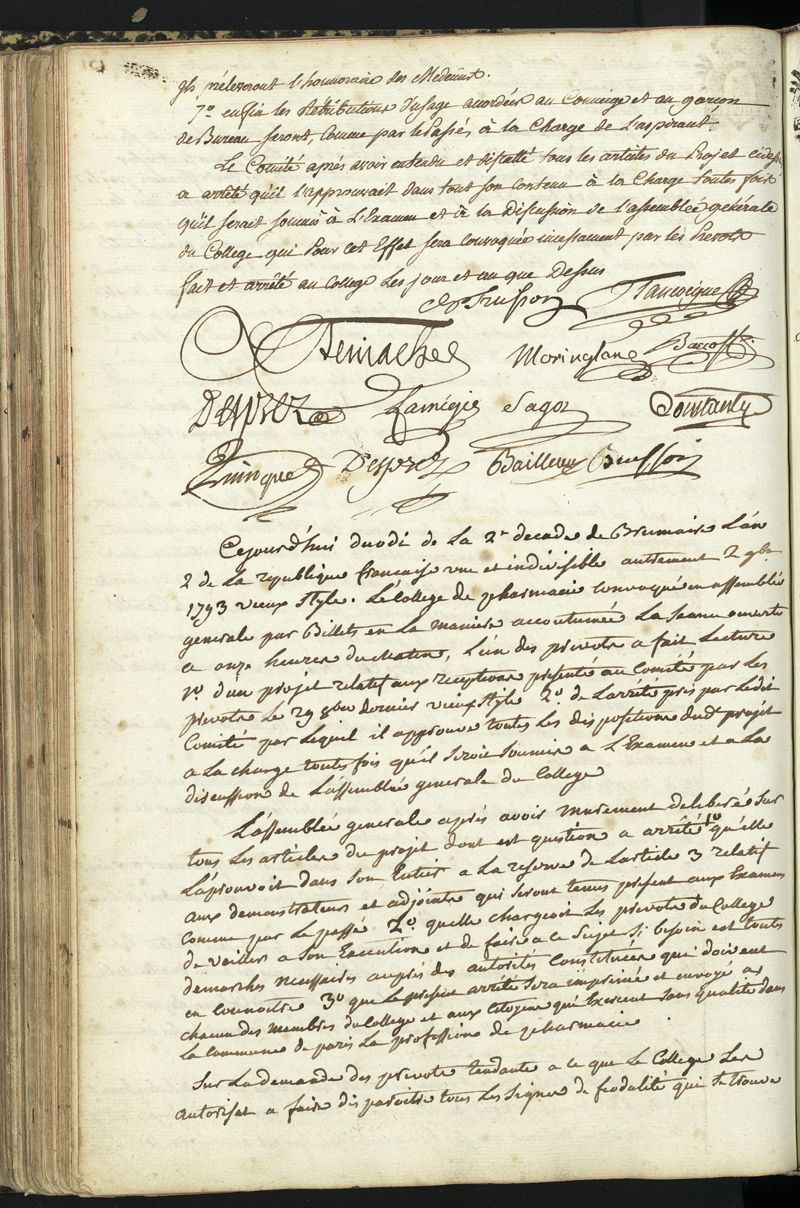 ils préleveront l'honoraire des Médecins.
7.º enfin les Rétributions d'usage accordées au Concierge et au garçon
de Bureau seront, Comme par le passé, à la Charge de L'aspirant.
Le Comité après avoir entendu et discutté tous les articles du Projet cidessus
a arrêté qu'il l'approuvait dans tout son contenu à la Charge toutes fois
qu'il serait soumis à L'Examen et à la Discussion de l'assemblée générale
du College qui Pour cet Effet sera convoquée incessamment par les Prevots
fait et arrêté au College Les jour et an que Dessus
Trusson
Demachy
Moringlane
DESPREZ Sagot
Quinquet Desprez Bailleux Buisson
Cejourd'hui duodi de la 2e decade de Brumaire L'an
2 de La republique française une et indivisible autrement 2 9bre
1793 vieux style. Le College de pharmacie convoqué en assemblée
generale par Billets en La maniere accoutumée La seance ouverte
a onze heures du matin, L'un des prevots a fait Lecture
1º d'un projet relatif aux receptions presenté au Comité par Les
prevots Le 29 8bre dernier vieux style 2º de L'arrêté pris par Ledit
Comité par Lequel il approuve toutes Les dispositions dudt projet
a La charge toutes fois qu'il seroit soumis a L'Examen et a La
discussion de L'assemblée generale du College
L'assemblée generale après avoir murement deliberé sur
tous Les articles du projet dont est question a arrêté 1º qu'elle
L'aprouvoit dans son Entier a La reserve de L'article 3 relatif
aux demonstrateurs et adjoints qui seront tenus presents aux Examens
comme par Le passé 2º qu'elle chargeoit Les prevots du College
de veiller a son Execution et de faire a ce sujet si besoin est toutes
demarches necessaires auprès des autorités constituées qui doivent
en connoitre 3º que Le present arrêté sera imprimé et envoyé a
chacun des membres du College et aux citoyens qui Exercent sans qualité dans
La Commune de paris La profession de pharmacie
Sur La demande des prevots tendante a ce que Le College Les
autorisat a faire disparoitre tous Les signes de feodalité qui se trouve